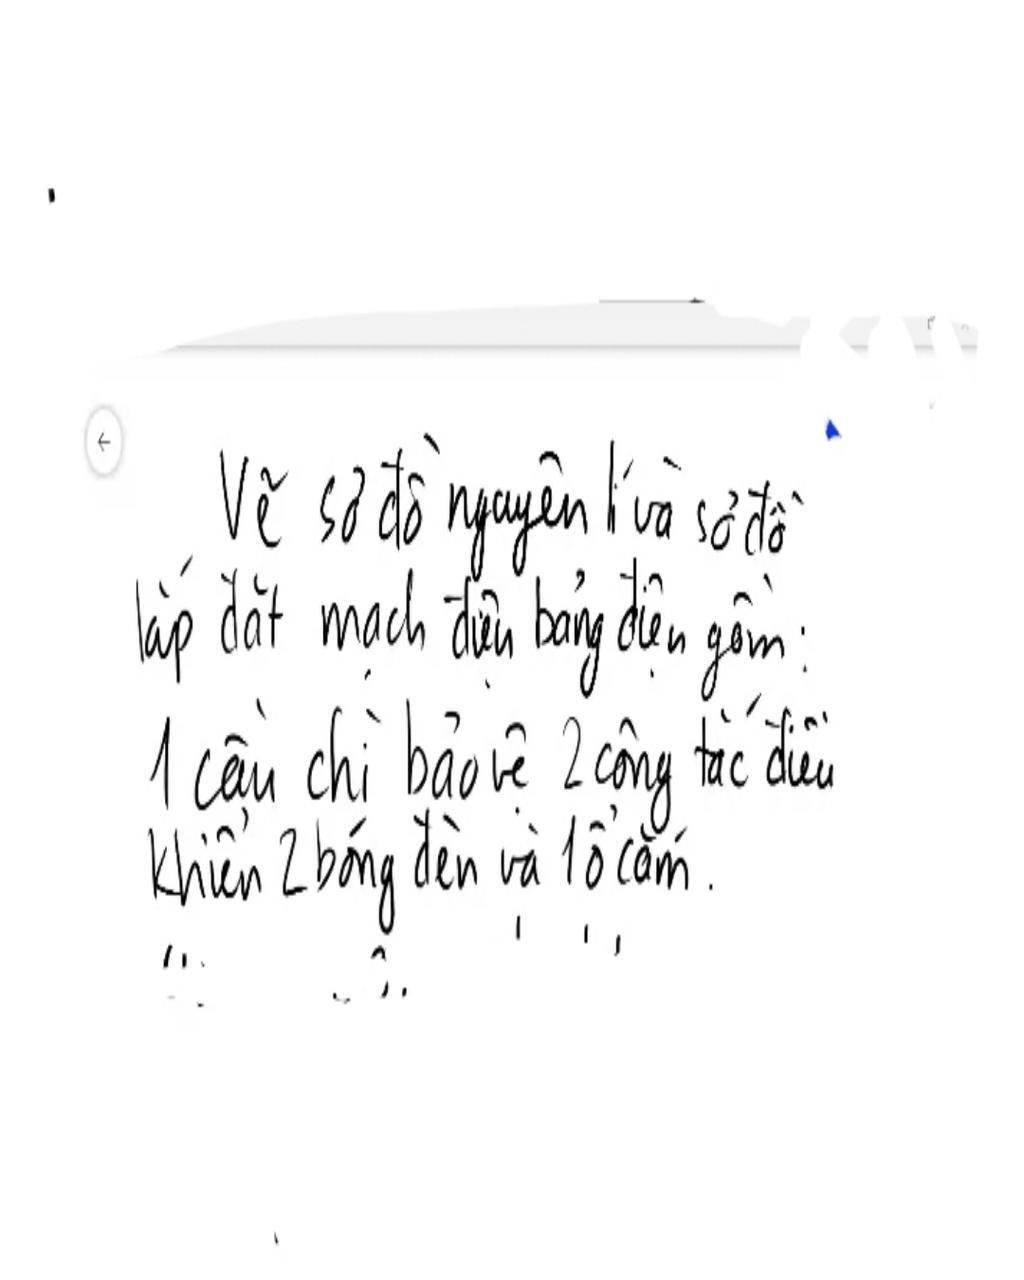 Vẽ sơ đồ nguyên lí và sơ đồ
lắp đặt mạch điện bảng điện gồm:
1 cầu chì bảo vệ 2 công tắc điều
khiển 2 bóng đèn và 1 ổ cắm.